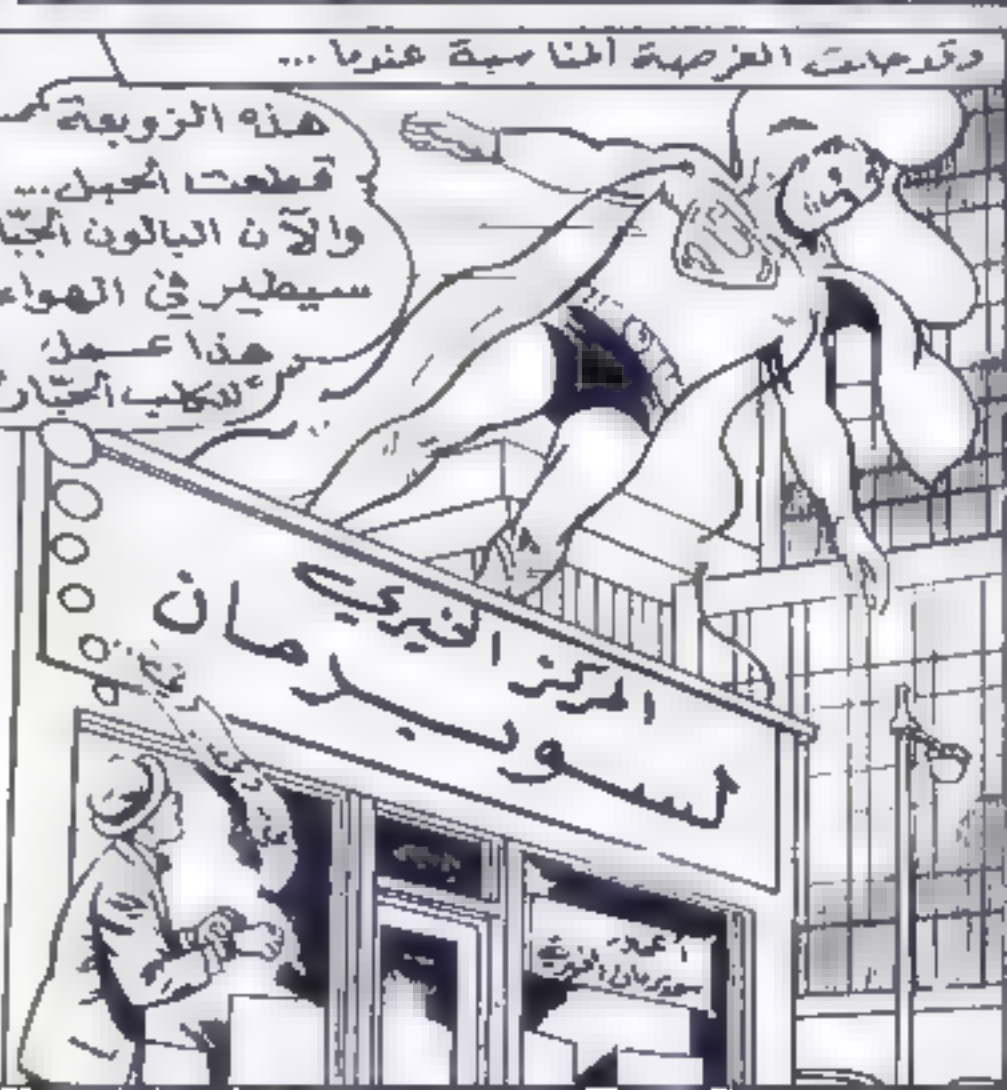 وقد جاءت الفرصة المناسبة عندما ...
هذه الزوبعة
قطعت الحبل...
والآن البالون الجبّا
سيطير في الهواء
هذا عمل
للكلب الجبّار
المركز الخيري
لسوبرمان